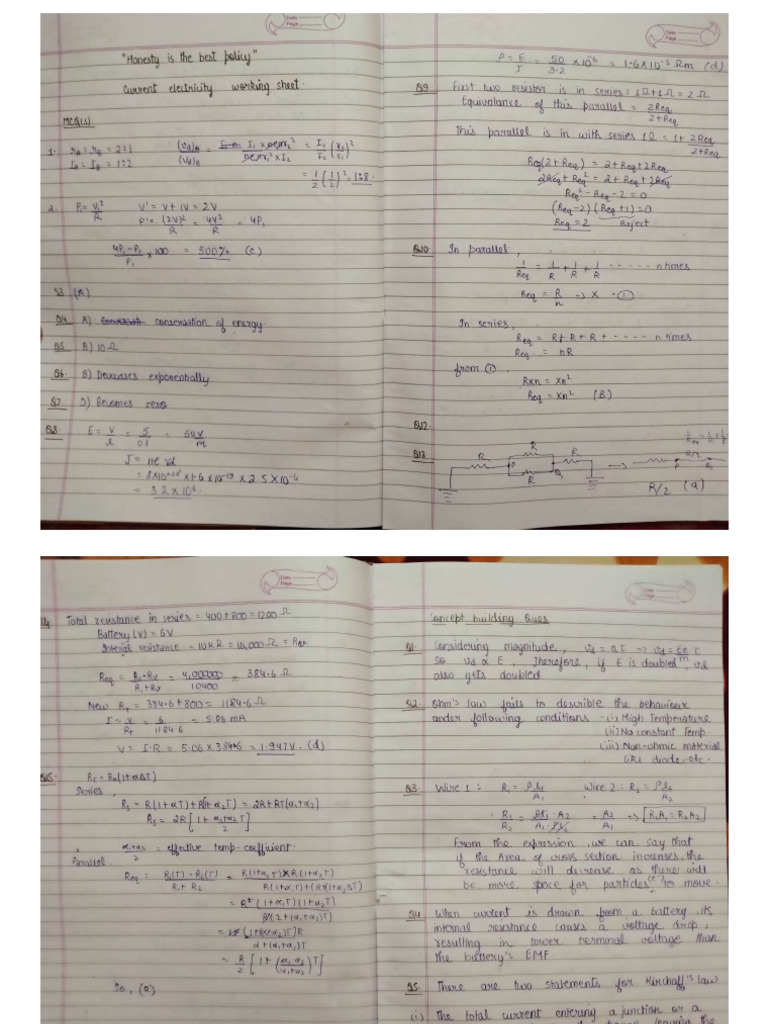 Date
Page
"Honesty is the best policy"
Current electricity working sheet.
MCQ(s)
1. rA : rB = 2:1
IA : IB = 1:2
(Vd)A / (Vd)B = I1 × πr2² / πr1² × I2 = I1/I2 (r2/r1)²
= 1/2 (1/2)², 1:8.
2. P1 = V1²/R V' = V + 1V = 2V
P' = (2V)²/R = 4V²/R = 4P1
4P1-P1/P1 × 100 = 300% (c)
Q3 (a)
Q4 A) conservation of energy
Q5 B) 10 Ω
Q6. B) Decreases exponentially
Q7 D) Becomes zero
Q8 E = V/l = 5/0.1 = 50 V/m
J = ne vd
= 8×10⁺²⁸ × 1.6 × 10⁻¹⁹ × 2.5 × 10⁻⁴
= 3.2 × 10⁶.
Date
Page
ρ = E/J = 50/3.2 × 10⁻⁶ = 1.6×10⁻⁵ Ωm (d)
Q9 First two resistor is in series: 1Ω+1Ω = 2Ω
Equivalance of this parallel = 2Req/2+Req
This parallel is in with series 1Ω = 1 + 2Req/2+Req
Req(2+Req) = 2+Req+2Req
2Req+Req² = 2+Req+2Req
Req²-Req-2 = 0
(Req-2)(Req+1) = 0
Req = 2 Reject
Q10. In parallel,
1/Req = 1/R + 1/R + 1/R ----- n times
Req = R/n → X -①
In series,
Req = R+R+R+ ----- n times
Req = nR
from ①.
R×n = Xn²
Req = Xn² (B)
Q12.
Q13
R R R R P Q R/2 P Q
R/2 (a)
Date
Page
Total resistance in series = 400+800 = 1200 Ω
Battery (V) = 6V
Internal resistance = 10KΩ = 10,000 Ω
Req = R1·R2/R1+R2 = 4,00000/10400 = 384.6 Ω
New RT = 384.6 + 800 = 1184.6 Ω
I = V/RT = 6/1184.6 = 5.06 mA
V = I·R = 5.06 × 384.6 = 1.947V. (d)
Q15. RT = R0(1+αΔT)
Series,
Rs = R(1+α1T)+R(1+α2T) = 2R+RT(α1+α2)
Rs = 2R[1+ α1+α2T/2]
α1+α2/2 = effective temp. coefficient.
Parallel
Req = R1(T)·R2(T)/R1+R2 = R(1+α1T)×R(1+α2T)/R(1+α1T)+(R(1+α2ΔT)
= R²(1+α1T)(1+α2T)/R(2+(α1+α2)T)
= (1+(α1+α2)T)R/2+(α1+α2)T
= R/2 [1+(α1α2/α1+α2)T]
So, (a)
Date
Page
Concept building Ques
Q1. Considering magnitude, vd = aτ ⇒ vd = Ee/m τ
so vd ∝ E, Therefore, if E is doubled, vd
also gets doubled
Q2. Ohm's law fails to describle the behaviour
under following conditions -(i) High Temperature
(ii) No constant Temp
(iii) Non-ohmic material
like diode etc.
Q3 Wire 1: R1 = ρl1/A1 Wire 2: R2 = ρl2/A2
R1/R2 = ρl1·A2/A1·ρl2 = A2/A1 → [R1A1 = R2A2]
From the expression, we can say that
if the Area of cross section increases, the
resistance will decrease as there will
be more space for particles (e⁻) to move.
Q4 When current is drawn from a battery, its
internal resistance causes a voltage drop,
resulting in lower terminal voltage than
the battery's EMF
Q5. There are two statements for Kirchaff's law
(i) The total current entering a junction or a